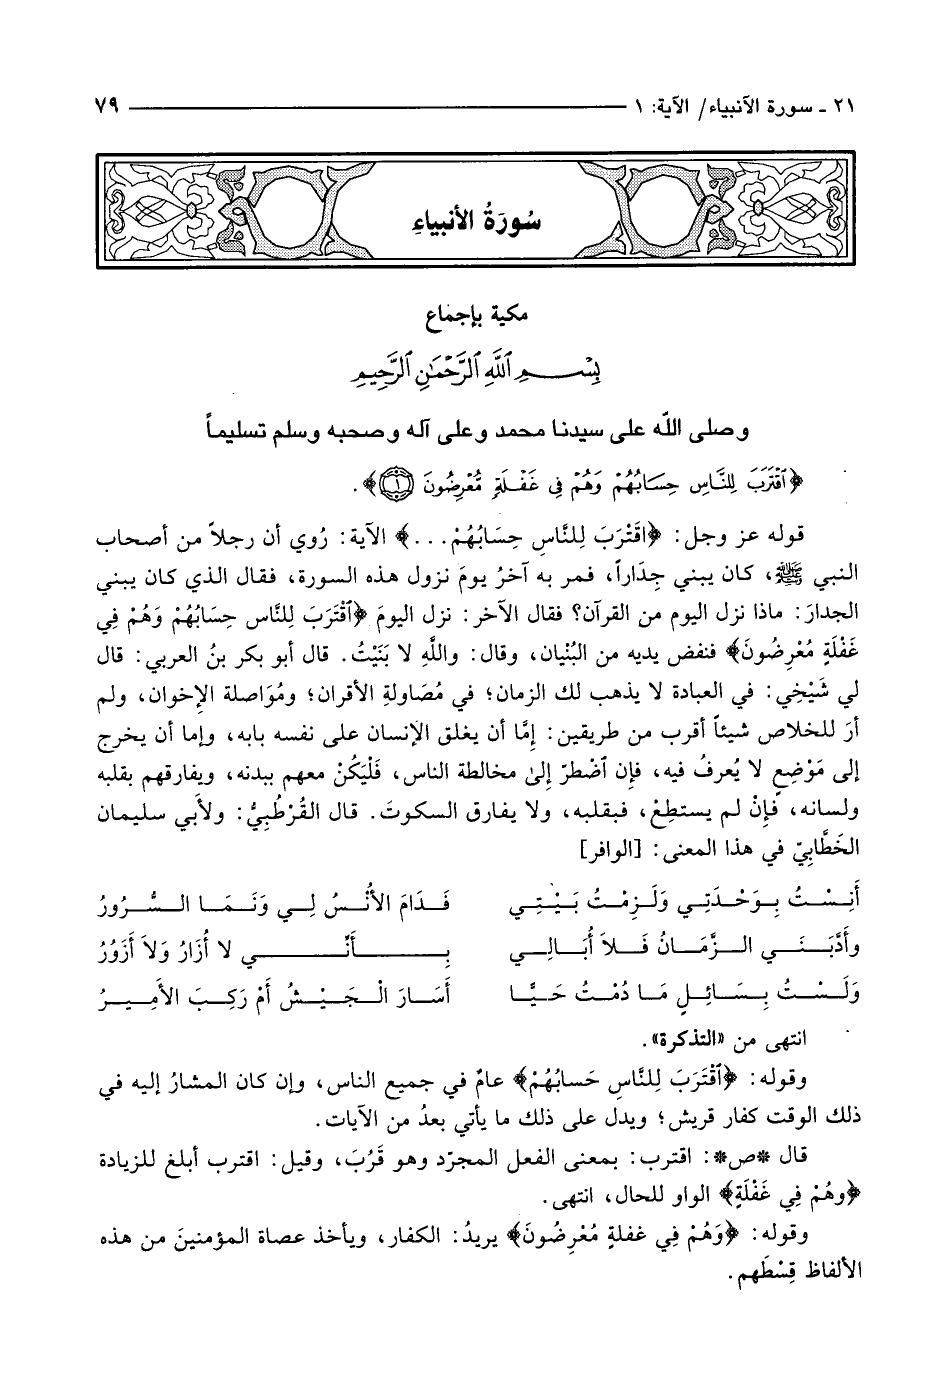 ٢١ - سورة الأنبياء/ الآية: ١ ٧٩
سُورَةُ الأنبياءِ
مكية بإجماع
بِسْمِ ٱللَّهِ ٱلرَّحْمَٰنِ ٱلرَّحِيمِ
وصلى اللّه على سيدنا محمد وعلى آله وصحبه وسلم تسليماً
﴿ٱقْتَرَبَ لِلنَّاسِ حِسَابُهُمْ وَهُمْ فِى غَفْلَةٍ مُّعْرِضُونَ ١﴾.
قوله عز وجل: ﴿اقْتَرَبَ لِلنَّاسِ حِسَابُهُمْ...﴾ الآية: رُوي أن رجلاً من أصحاب
النبي ﷺ، كان يبني جِدَاراً، فمر به آخرُ يومَ نزول هذه السورة، فقال الذي كان يبني
الجدارَ: ماذا نزل اليوم من القرآن؟ فقال الآخر: نزل اليومَ ﴿ٱقْتَرَبَ لِلنَّاسِ حِسَابُهُمْ وَهُمْ فِي
غَفْلَةٍ مُعْرِضُونَ﴾ فنفض يديه من البُنْيان، وقال: واللَّهِ لا بَنَيْتُ. قال أبو بكر بنُ العربي: قال
لي شَيْخِي: في العبادة لا يذهب لك الزمان؛ في مُصَاولةِ الأقران؛ ومُوَاصلة الإخوان، ولم
أرَ للخلاص شيئاً أقرب من طريقين: إمَّا أن يغلق الإنسان على نفسه بابه، وإما أن يخرج
إلى مَوْضِعٍ لا يُعرفُ فيه، فإن ٱضْطرّ إلىٰ مخالطة الناس، فَلْيَكُنْ معهم ببدنه، ويفارقهم بقلبه
ولسانه، فإنْ لم يستطِعْ، فبقلبه، ولا يفارق السكوتَ. قال القُرْطُبِيُّ: ولأَبي سليمان
الخَطَّابِيّ في هذا المعنى: [الوافر]
أَنِسْتُ بِوَحْدَتِي وَلَزِمْتُ بَيْتِي فَدَامَ الأُنْسُ لِي وَنَمَا السُّرُورُ
وأَدَّبَنِي الزَّمَانُ فَلاَ أُبَالِي بِأَنِّي لا أُزَارُ وَلاَ أَزُورُ
وَلَسْتُ بِسَائِلٍ مَا دُمْتُ حَيًّا أَسَارَ الْجَيْشُ أَمْ رَكِبَ الأَمِيرُ
انتهى من «التذكرة».
وقوله: ﴿ٱقْتَرَبَ لِلنَّاسِ حَسابُهُمْ﴾ عامٌ في جميع الناس، وإن كان المشارُ إليه في
ذلك الوقت كفار قريش؛ ويدل على ذلك ما يأتي بعدُ من الآيات.
قال *ص*: اقترب: بمعنى الفعل المجرّد وهو قَرُبَ، وقيل: اقترب أبلغ للزيادة
﴿وهُمْ فِي غَفْلَةٍ﴾ الواو للحال، انتهى.
وقوله: ﴿وَهُمْ فِي غفلةٍ مُعْرِضُونَ﴾ يريدُ: الكفار، ويأخذ عصاة المؤمنينَ من هذه
الألفاظ قِسْطَهم.